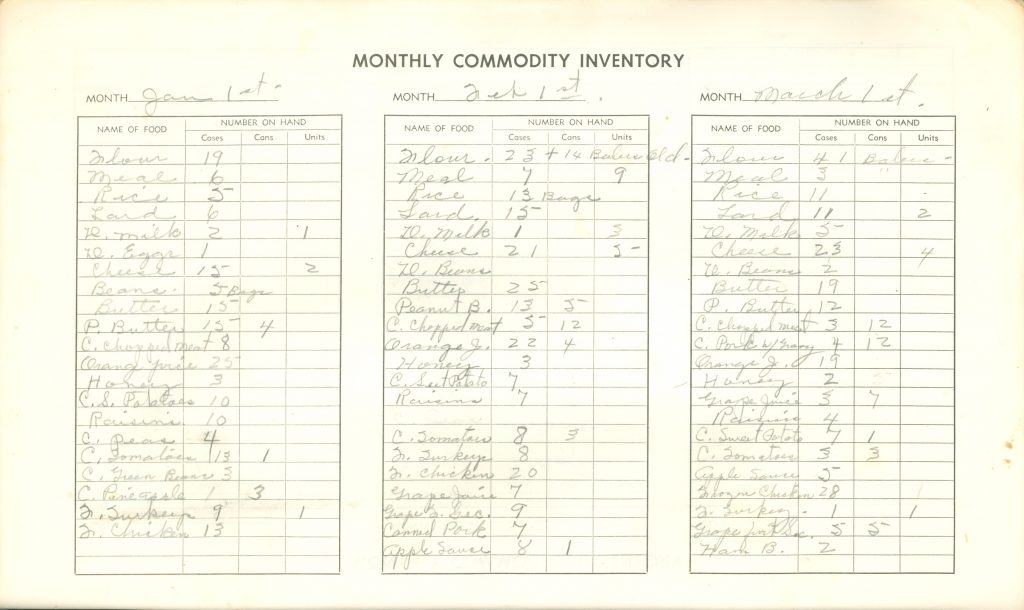 MONTHLY COMMODITY INVENTORY
MONTH Jan 1st.
NAME OF FOOD NUMBER ON HAND
Cases Cans Units
Flour 19
Meal 6
Rice 5
Lard 6
D. Milk 2 1
D. Eggs 1
Cheese 15 2
Beans. 5 Bags
Butter 15
P. Butter 15 4
C. Chopped Meat 8
Orange Juice 25
Honey 3
C. S. Potatoes 10
Raisins 10
C. Peas 4
C. Tomatoes 13 1
C. Green Beans 3
C. Pineapple 1 3
F. Turkeys 9 1
F. Chicken 13
MONTH Feb 1st.
NAME OF FOOD NUMBER ON HAND
Cases Cans Units
Flour. 23 + 14 Bales Old
Meal 7 9
Rice 13 Bags
Lard 15
D. Milk 1 3
Cheese 21 5
D. Beans
Butter 25
Peanut B. 13 5
C. Chopped Meat 5 12
Orange J. 22 4
Honey 3
C. Sweet Potato 7
Raisins 7
C. Tomatoes 8 3
F. Turkeys 8
F. Chicken 20
Grape Juice 7
Grape F. Sec. 9
Canned Pork 7
Apple Sauce 8 1
MONTH March 1st.
NAME OF FOOD NUMBER ON HAND
Cases Cans Units
Flour 41 Bales
Meal 3 "
Rice 11
Lard 11 2
D. Milk 5
Cheese 23 4
D. Beans 2
Butter 19
P. Butter 12
C. Chopped Meat 3 12
C. Pork W/Gravy 4 12
Orange J. 19
Honey 2
Grape Juice 3 7
Raisins 4
C. Sweet Potato 7 1
C. Tomatoes 3 3
Apple Sauce 5
Frozen Chicken 28
F. Turkey. 1 1
Grape Sec. 5 5
Ham B. 2